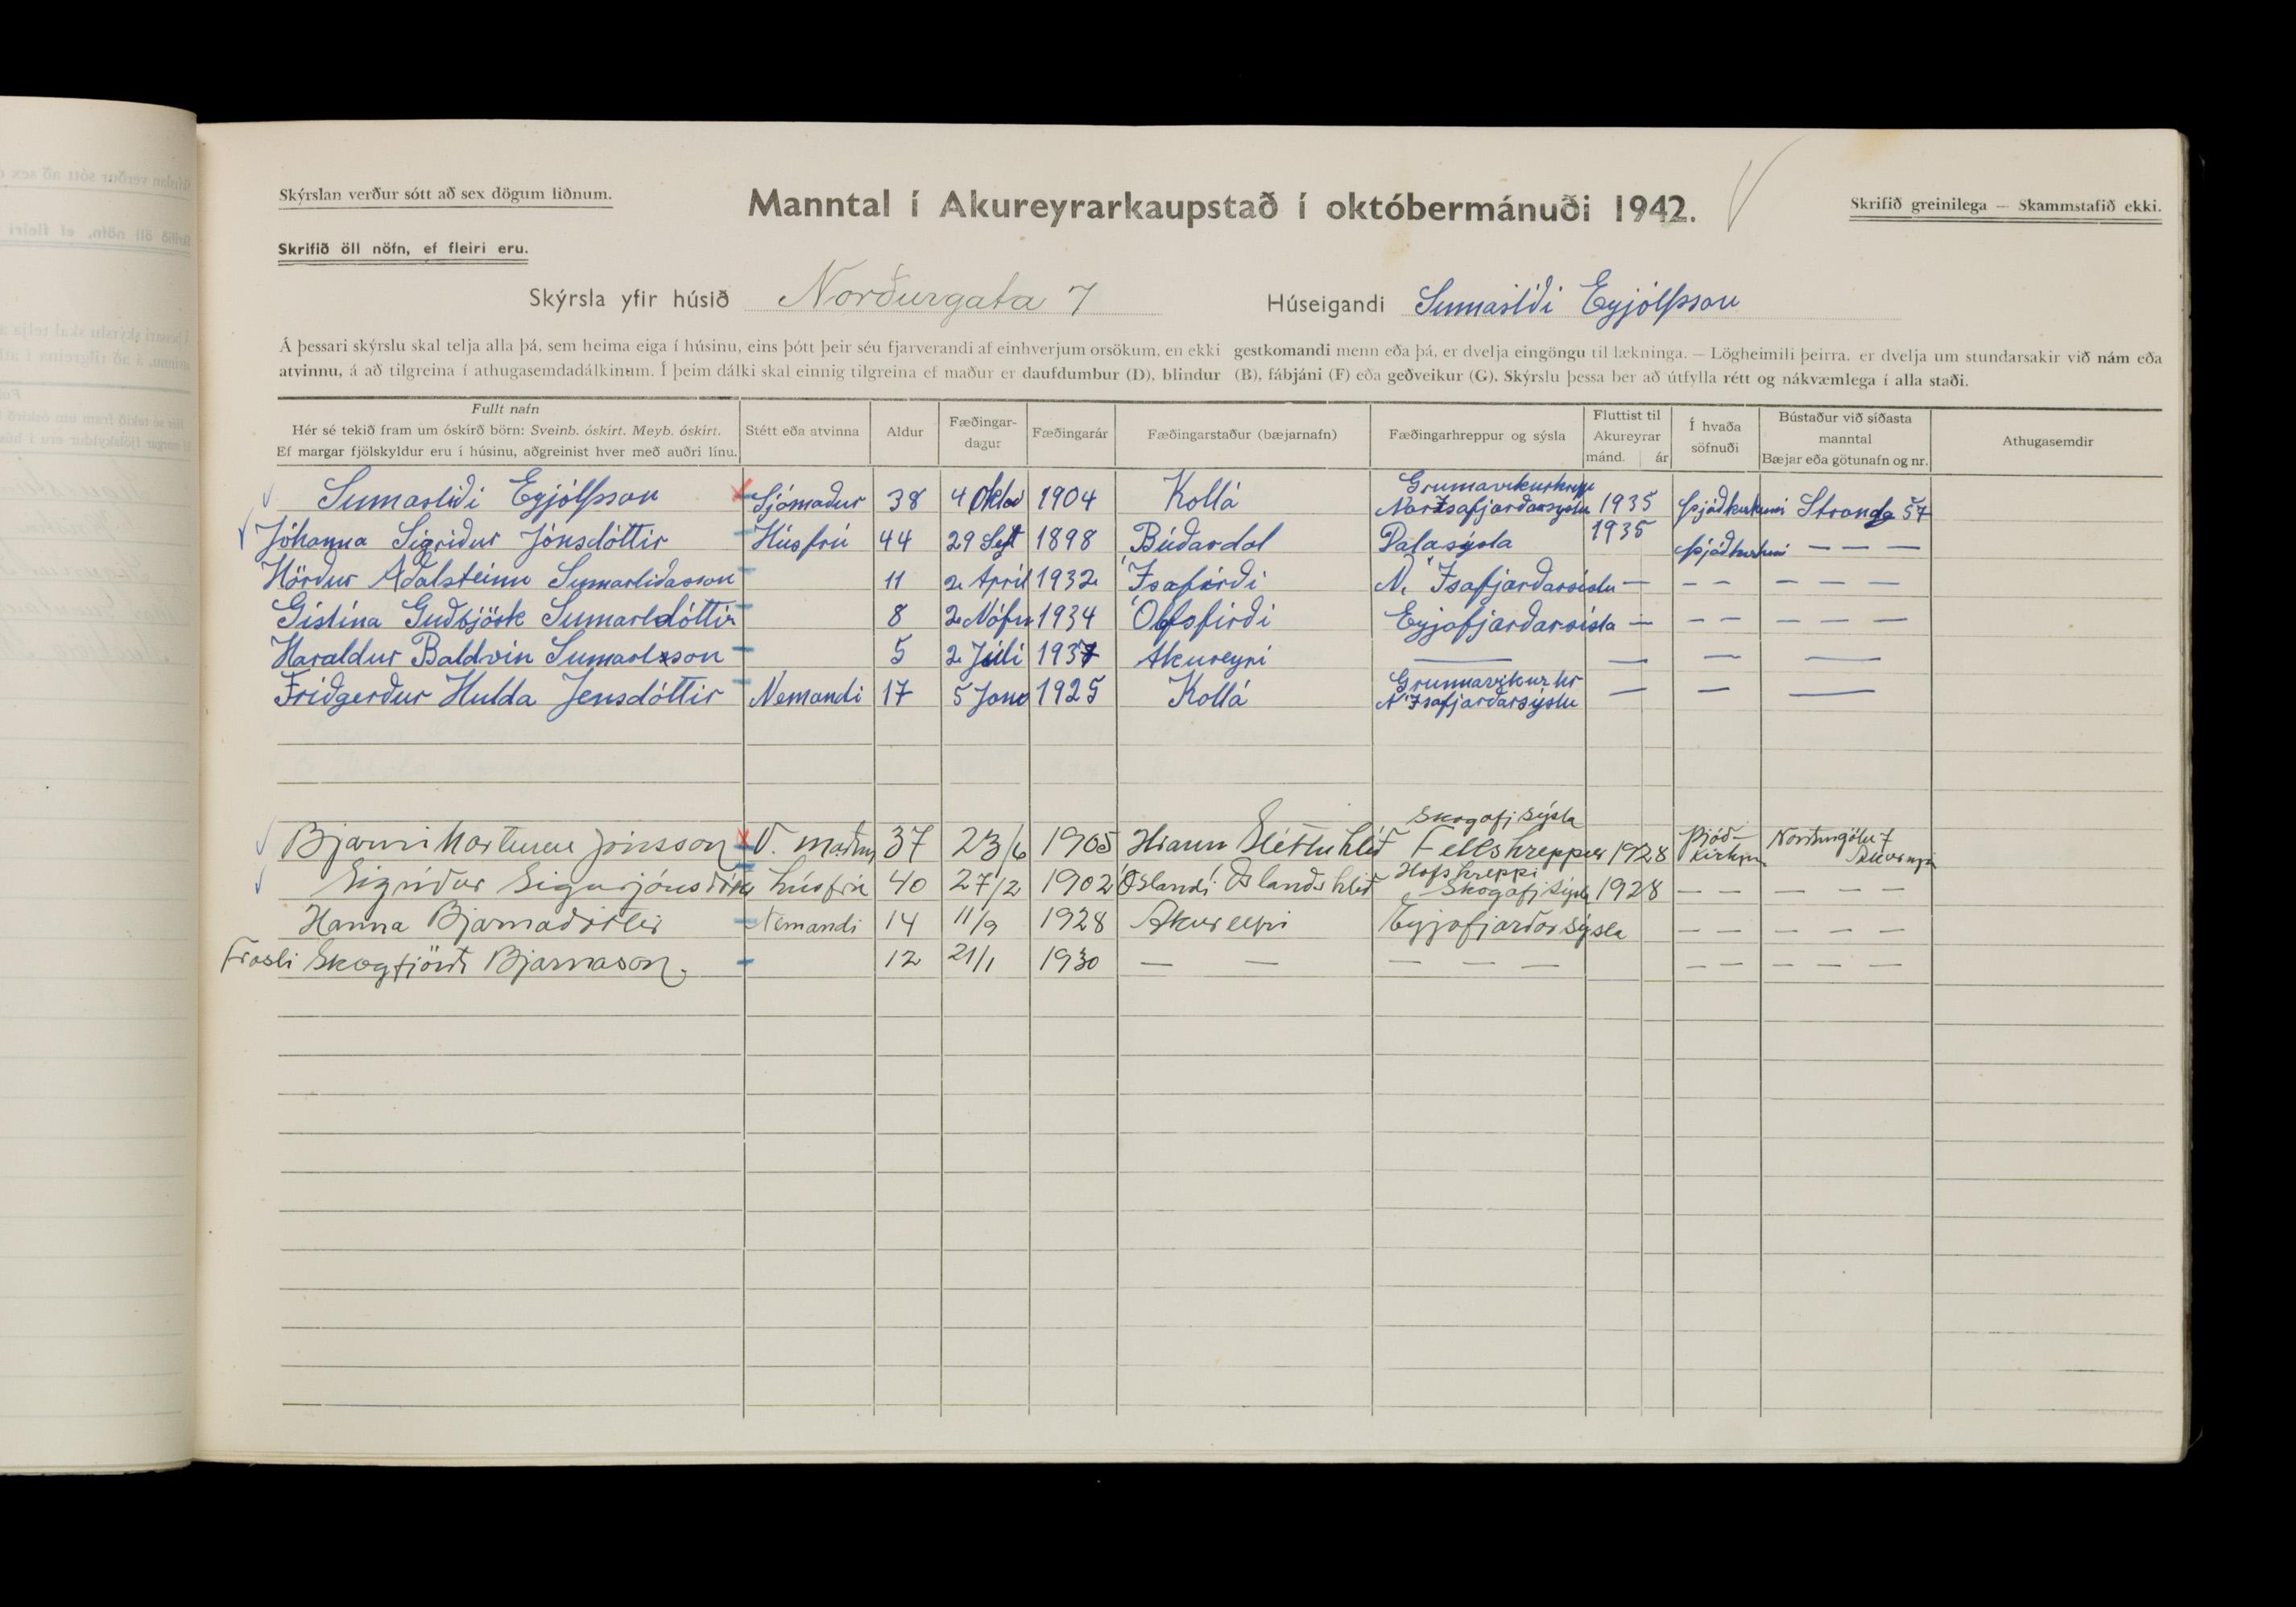 Skýrslan verður sótt að sex dögum liðnum.
Manntal í Akureyrarkaupstað í októbermánuði 1942.
Skrifið greinilega — Skammstafið ekki.
Skrifið öll nöfn, ef fleiri eru.
Skýrsla yfir húsið Norðurgata 7 Húseigandi Sumarliði Eyjólfsson
Á þessari skýrslu skal telja alla þá, sem heima eiga í húsinu, eins þótt þeir séu fjarverandi af einhverjum orsökum, en ekki gestkomandi menn eða þá, er dvelja eingöngu til lækninga. — Lögheimili þeirra, er dvelja um stundarsakir við nám eða
atvinnu, á að tilgreina í athugasemdadálkinum. Í þeim dálki skal einnig tilgreina ef maður er daufdumbur (D), blindur (B), fábjáni (F) eða geðveikur (G). Skýrslu þessa ber að útfylla rétt og nákvæmlega í alla staði.
Fullt nafn
Hér sé tekið fram um óskírð börn: Sveinb. óskírt. Meyb. óskírt.
Ef margar fjölskyldur eru í húsinu, aðgreinist hver með auðri línu.
Stétt eða atvinna
Aldur
Fæðingar-
dagur
Fæðingarár
Fæðingarstaður (bæjarnafn)
Fæðingarhreppur og sýsla
Fluttist til
Akureyrar
mánd. ár
Í hvaða
söfnuði
Bústaður við síðasta
manntal
Bæjar eða götunafn og nr.
Athugasemdir
Grunavikurhrepp
Sumarliði Eyjólfsson Sjómaður 38 4 Oktob 1904 Kollá Nor Isafjarðarsyslu 1935 Þjóðkirkjuni Strandg 57
Jóhanna Sigriður Jónsdóttir Húsfrú 44 29 Sept 1898 Búðardal Dalasýsla 1935 Þjóðkirkjuni — — —
Hörður Aðalsteinn Sumarliðasson 11 2 Apríl 1932 Ísafirði N. Ísafjarðarsíslu — — — — — —
Gistína Guðbjörk Sumarldóttir 8 2 Nófm 1934 Ólfsfirði Eyjafjarðarsísla — — — — — —
Haraldur Baldvin Sumarlsson 5 2 Júlí 1937 Akureyri — — — —
Grunnavikur hr
Friðgerður Hulda Jensdóttir Nemandi 17 5 Janu 1925 Kollá N Ísafjarðarsýslu — — —
Skagafj sýsla
Bjarni Marteinn Jónsson V. maður 37 23/6 1905 Hraun Sléttuhlíð Fellshreppur 1928 Þjóð-kirkjan Norðurgötu 7 Akureyri
Hofshreppi
Sigríður Sigurjónsdóttir húsfrú 40 27/2 1902 Óslandi. Óslandshlíð Skagafj Sýsla 1928 — — — — —
Hanna Bjarnadóttir Nemandi 14 11/9 1928 Akureyri Eyjafjarðarsýsla — — — — —
Trausti Skagfjörð Bjarnason. 12 21/1 1930 — — — — — — — — — —